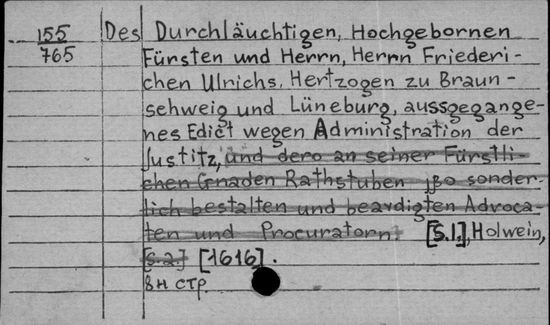 155 Des Durchläuchtigen, Hochgebornen
765 Fürsten und Herrn, Herrn Friederi-
chen Ulrichs, Hertzogen zu Braun-
schweig und Lüneburg, aussgegange-
nes Edict wegen Administration der
Justitz, und dero an seiner Fürstli-
chen Gnaden Rathstuben so sonder-
lich bestalten und beaydigten Advoca-
ten und Procuratorn. [S.l.], Holwein,
[s.a.] [1616].
8н стр.